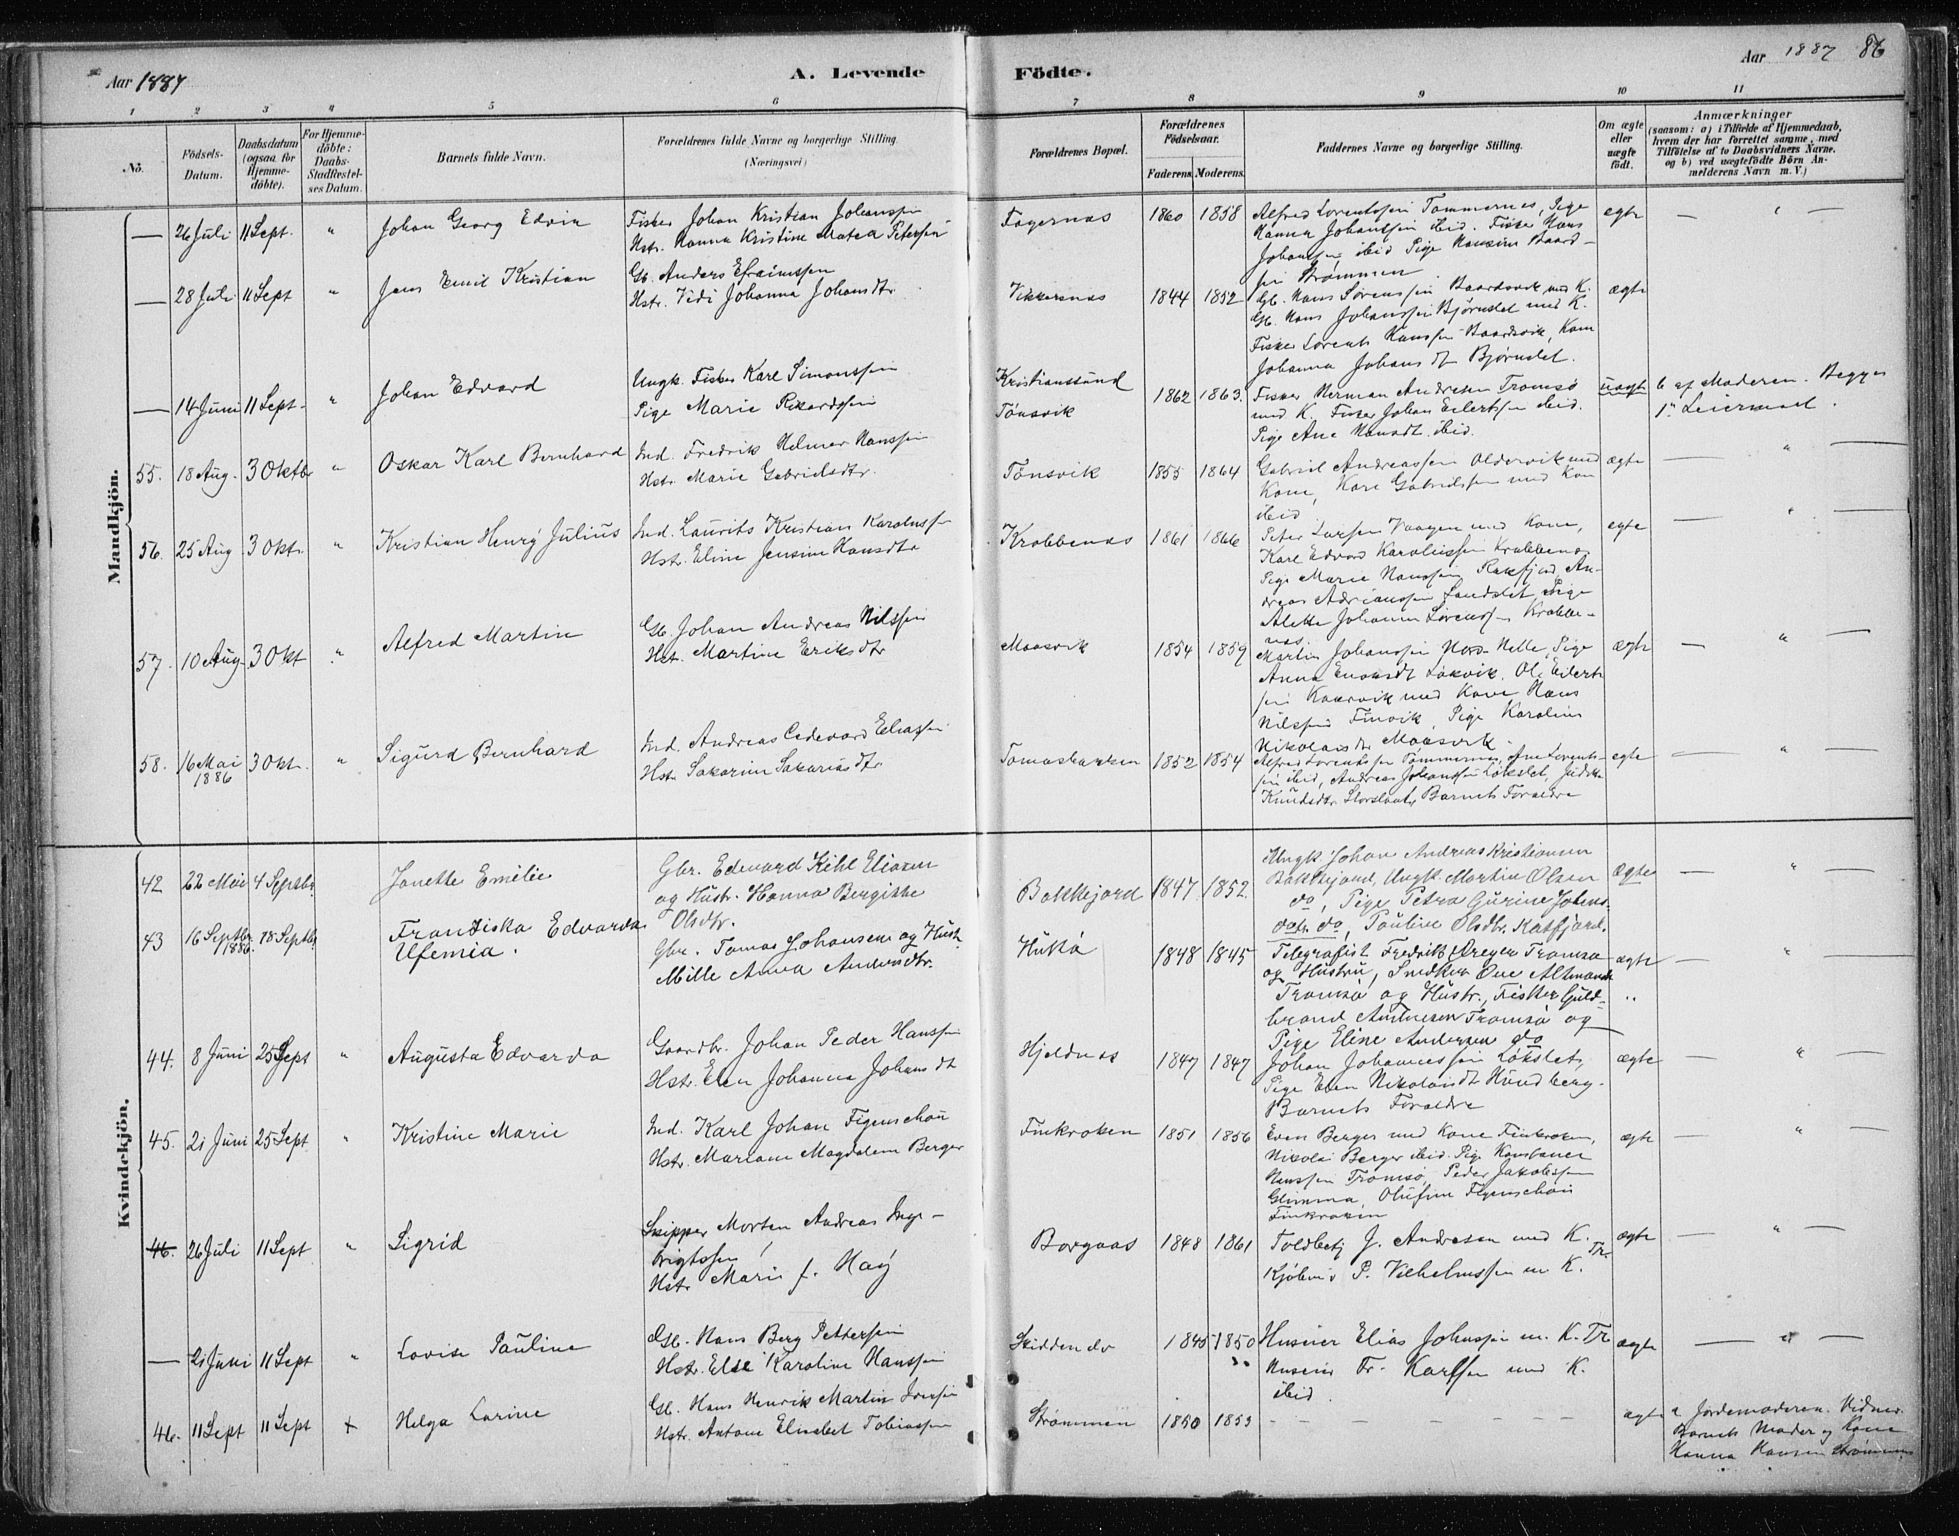 Aar 1887
A. Levende
Födte.
Aar 1887
86
1 2 3 4 5 6 7 8 9 10 11
No.
Födsels-Datum.
Daabsdatum (ogsaa for Hjemme-döbte).
For Hjemme-döbte: Daabs-Stadfæstel-ses Datum.
Barnets fulde Navn.
Forældrenes fulde Navne og borgerlige Stilling. (Næringsvei)
Forældrenes Bopæl.
Forældrenes Födselsaar.
Faderens. Moderens.
Faddernes Navne og borgerlige Stilling.
Om ægte eller uægte födt.
Anmærkninger
(saasom: a) i Tilfælde af Hjemmedaab, hvem der har forrettet samme, med Tilföielse af to Daabsvidners Navne. og b) ved uægtefödte Börn An-melderens Navn m. V.)
Mandkjön.
— 26 Juli 11 Sept. " Johan Georg Edvin
Fisker Johan Kristian Johanssen
Hstr. Hanna Kristine Matea Petersen
Fagernæs 1860 1858
Alfred Lorentssen Tommernes, Pige
Hanna Johanssen ibid. Fisker Hans
Johanssen, ibid Pige Hansine Baard-
sen Strømmen
egte — " —
— 28 Juli 11 Sept " Jens Emil Kristian
Gb. Anders Efraimssen
Hstr. Vidi Johanna Johansdtr
Vikkernæs 1844 1852
Gb. Hans Sørenssen Baardsvik med K.
Gb. Hans Johanssen Bjørnslet med K.
Fisker Lorents Hanssen Baardsvik, Kone
Johanna Johansdtr Bjørnslet.
ægte
— 14 Juni 11 Sept. " Johan Edvard
Ungk. Fisker Karl Simonssen
Pige Marie Rikardssen
Kristianssund
Tønsvik
1862 1863.
Fisker Herman Andresen Tromsø
med K. Fisker Johan Eilertssen ibid.
Pige Ane Hansdt. ibid.
uægte
b af Moderen. Begges
1ste Leiermaal.
55. 18 Aug. 3 Oktbr " Oskar Karl Bernhard
Ind. Fredrik Helmer Hanssen
Hstr. Marie Gabrielsdtr.
Tønsvik 1855 1864
Gabriel Andreassen Oldervik med
Kone, Kare Gabrielssen med Kone
ibid
ægte — " —
56. 25 Aug 3 Oktr. " Kristian Henry Julius
Ind. Laurits Kristian Karolussen
Hstr. Eline Jensine Hansdtr
Krabbenæs 1861 1866
Peter Larsen Vaagen med Kone,
Karl Edvard Karolussen Krabbenæs
Pige Marie Hanssen Rakfjord, An-
dreas Adrianssen Sandslet, Pige
Alette Johanna Sørenssen Krabbe-
næs.
egte — " —
57. 10 Aug. 3 Okt " Alfred Martin
Gb. Johan Andreas Nilssen
Hst. Martine Eriksdtr
Maasvik 1854 1859
Martin Johanssen Nord-Melle, Pige
Anna Enoksdt Løkvik. Ole Eilert-
sen Kaarvik med Kone Hans
Nilssen Finvik, Pige Karoline
Nikolaisdtr Maasvik.
ægte — " —
58. 16 Mai 1886 3 Okt. " Sigurd Bernhard
Ind. Andreas Cedevard Eliassen
Hstr Sakarine Sakariasdtr
Tomasbakken 1852 1854
Alfred Lorentssen Tømmernes, Ane Lorents-
sen ibid, Andreas Johanssen Løkslet, Judith
Knudsdtr. Storslaat, Barnets Forældre
egte — " —
Kvindekjön.
42 22 Mai 4 Septbr. Janette Emelie
Gbr. Edevard Kihl Eliasen
og Hustr. Hanna Bergitte
Olsdtr.
Bakkejord 1847 1852.
Ungk. Johan Andreas Kristiansen
Bakkejord, Ungk. Martin Olsen
do, Pige Petra Gurine Johans-
datr. do, Pauline Olsdtr. Katfjord.
ægte — " —
43 16 Septbr. 1886. 18 Septbr. Franziska Edvarda
Ufemia.
Gbr. Tomas Johansen og Hust.
Mille Anna Andersdtr.
Hukø 1848 1845
Telegrafist Fredrik Dreyer Tromsø
og Hustru, Snedker Ove Altmann
Tromsø og Hustr., Fisker Guld-
brand Andresen Tromsø og
Pige Eline Andersen do
ægte — " —
44. 8 Juni 25 Sept " Augusta Edvarda
Gaardbr. Johan Peder Hanssen
Hstr. Elen Johanna Johansdt
Hjeldnæs 1847 1847
Johan Johannessen Løkslet,
Pige Elen Nikolaisdt Hundberg.
Barnets Forældre
ægte — " —
45. 21 Juni 25 Sept " Kristine Marie
Ind. Karl Johan Figenschou
Hstr. Mariane Magdalena Berger
Finkroken 1851 1856
Even Berger med Kone Finkroken,
Nikolai Berger ibid. Pige Konstance
Hanssen Tromsø, Peder Jakobssen
Glimma, Olufine Figenschou
Finkroken
ægte — " —
46. 26 Juli 11 Sept " Sigrid
Skipper Morten Andreas Inge-
brigtssen
Hstr. Marie f. Haÿ
Borgaas 1848 1861
Toldbetj J. Andresen med K.
Kjøbm. P. Vilhelmssen m K. Tr.
ægte — " —
— 21 Juni 11 Sept " Lovise Pauline
Gb. Hans Berg Pettersen
Hstr. Else Karoline Hanssen
Skiddenelv 1845 1850
Husmer Elias Johnssen m. K. Tr
Husmer Fr. Karlssen med K.
ibid.
ægte — " —
46. 11 Sept 11 Sept + Helga Larine
Gb. Hans Henrik Martin Ivssen
Hstr. Antone Elisabet Tobiassen
Strømmen 1850 1853
ægte
a Jordemoderen. Vidner
Barnets Moder og Kone
Hanna Hansen Strømmen